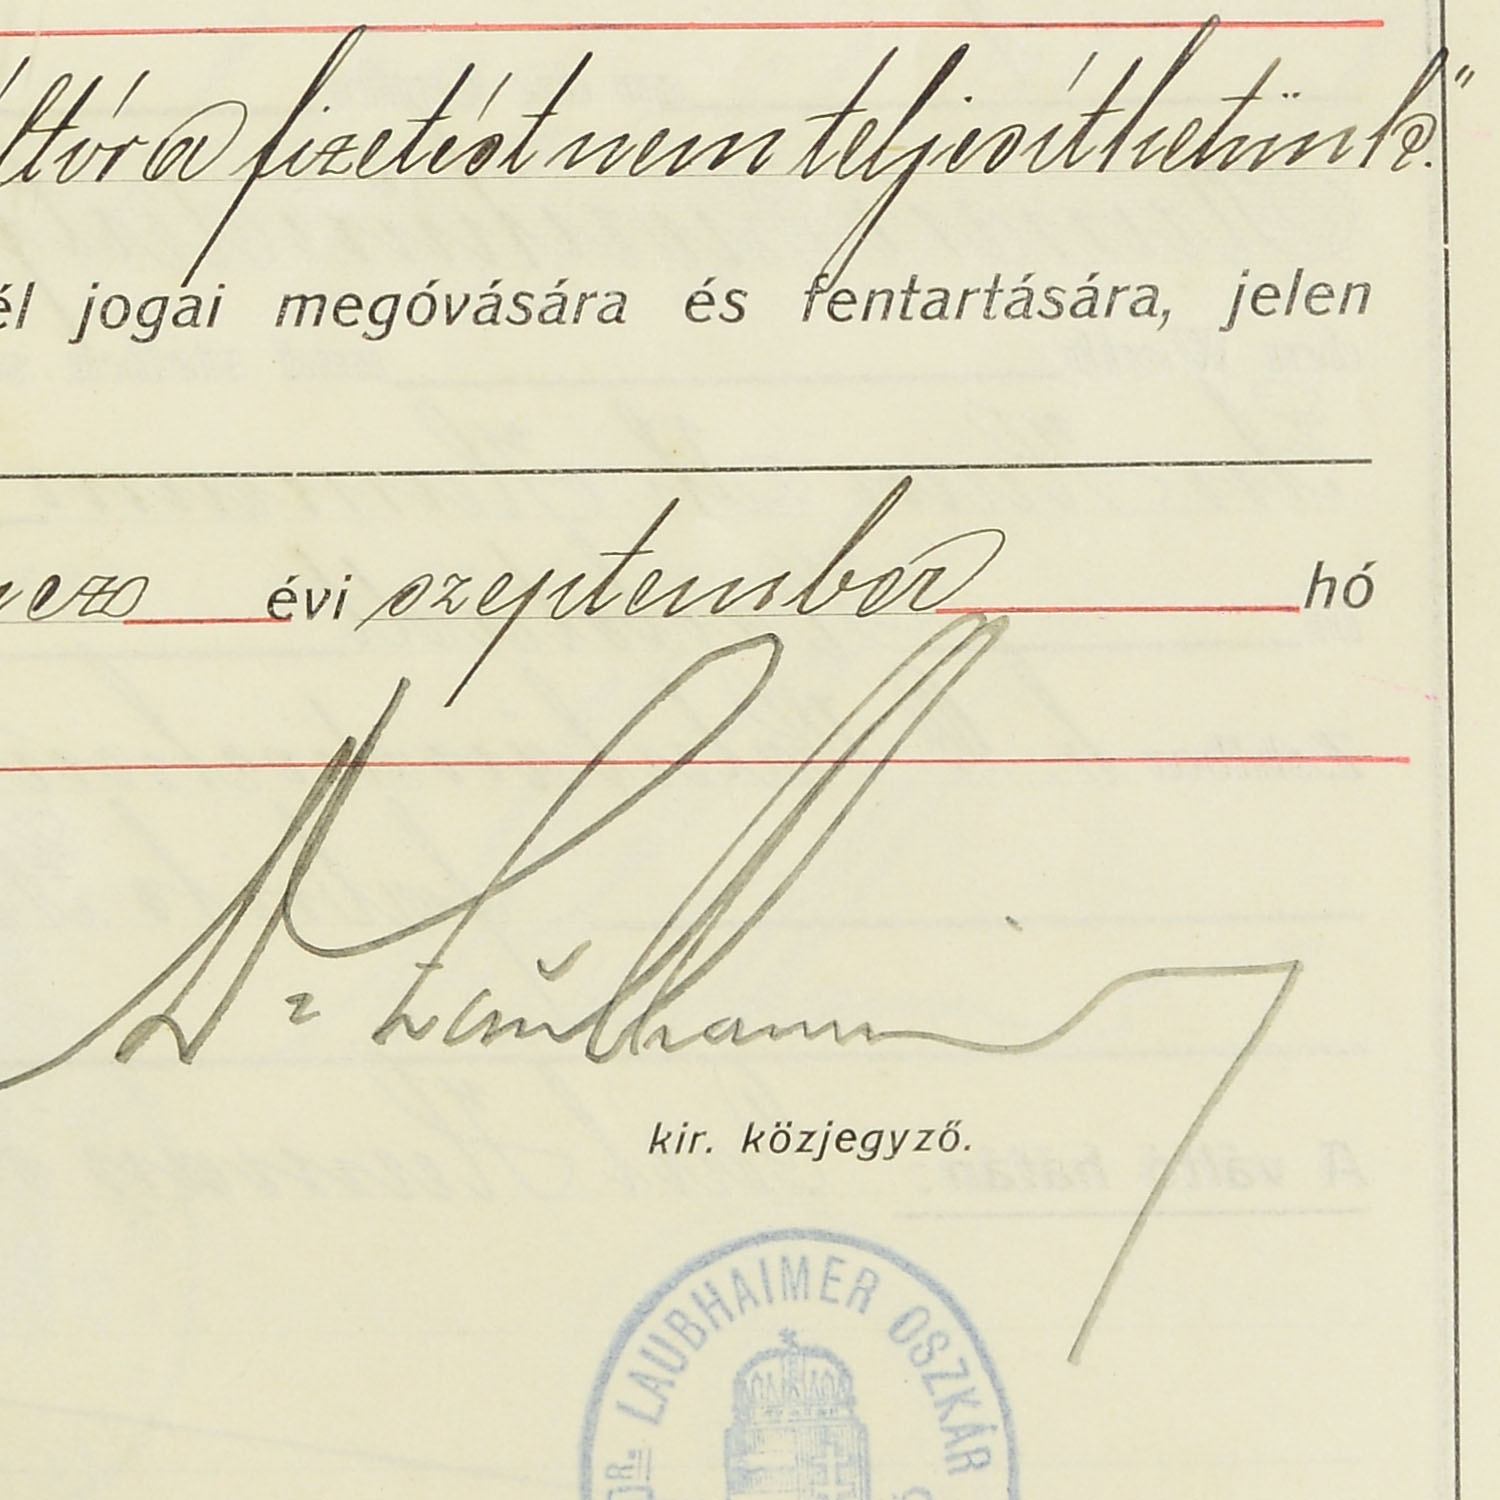 váltóra fizetést nem teljesíthetünk."
él jogai megóvására és fentartására, jelen
évi szeptember hó
Dr Laubhaimer
kir. közjegyző.
DR. LAUBHAIMER OSZKÁR